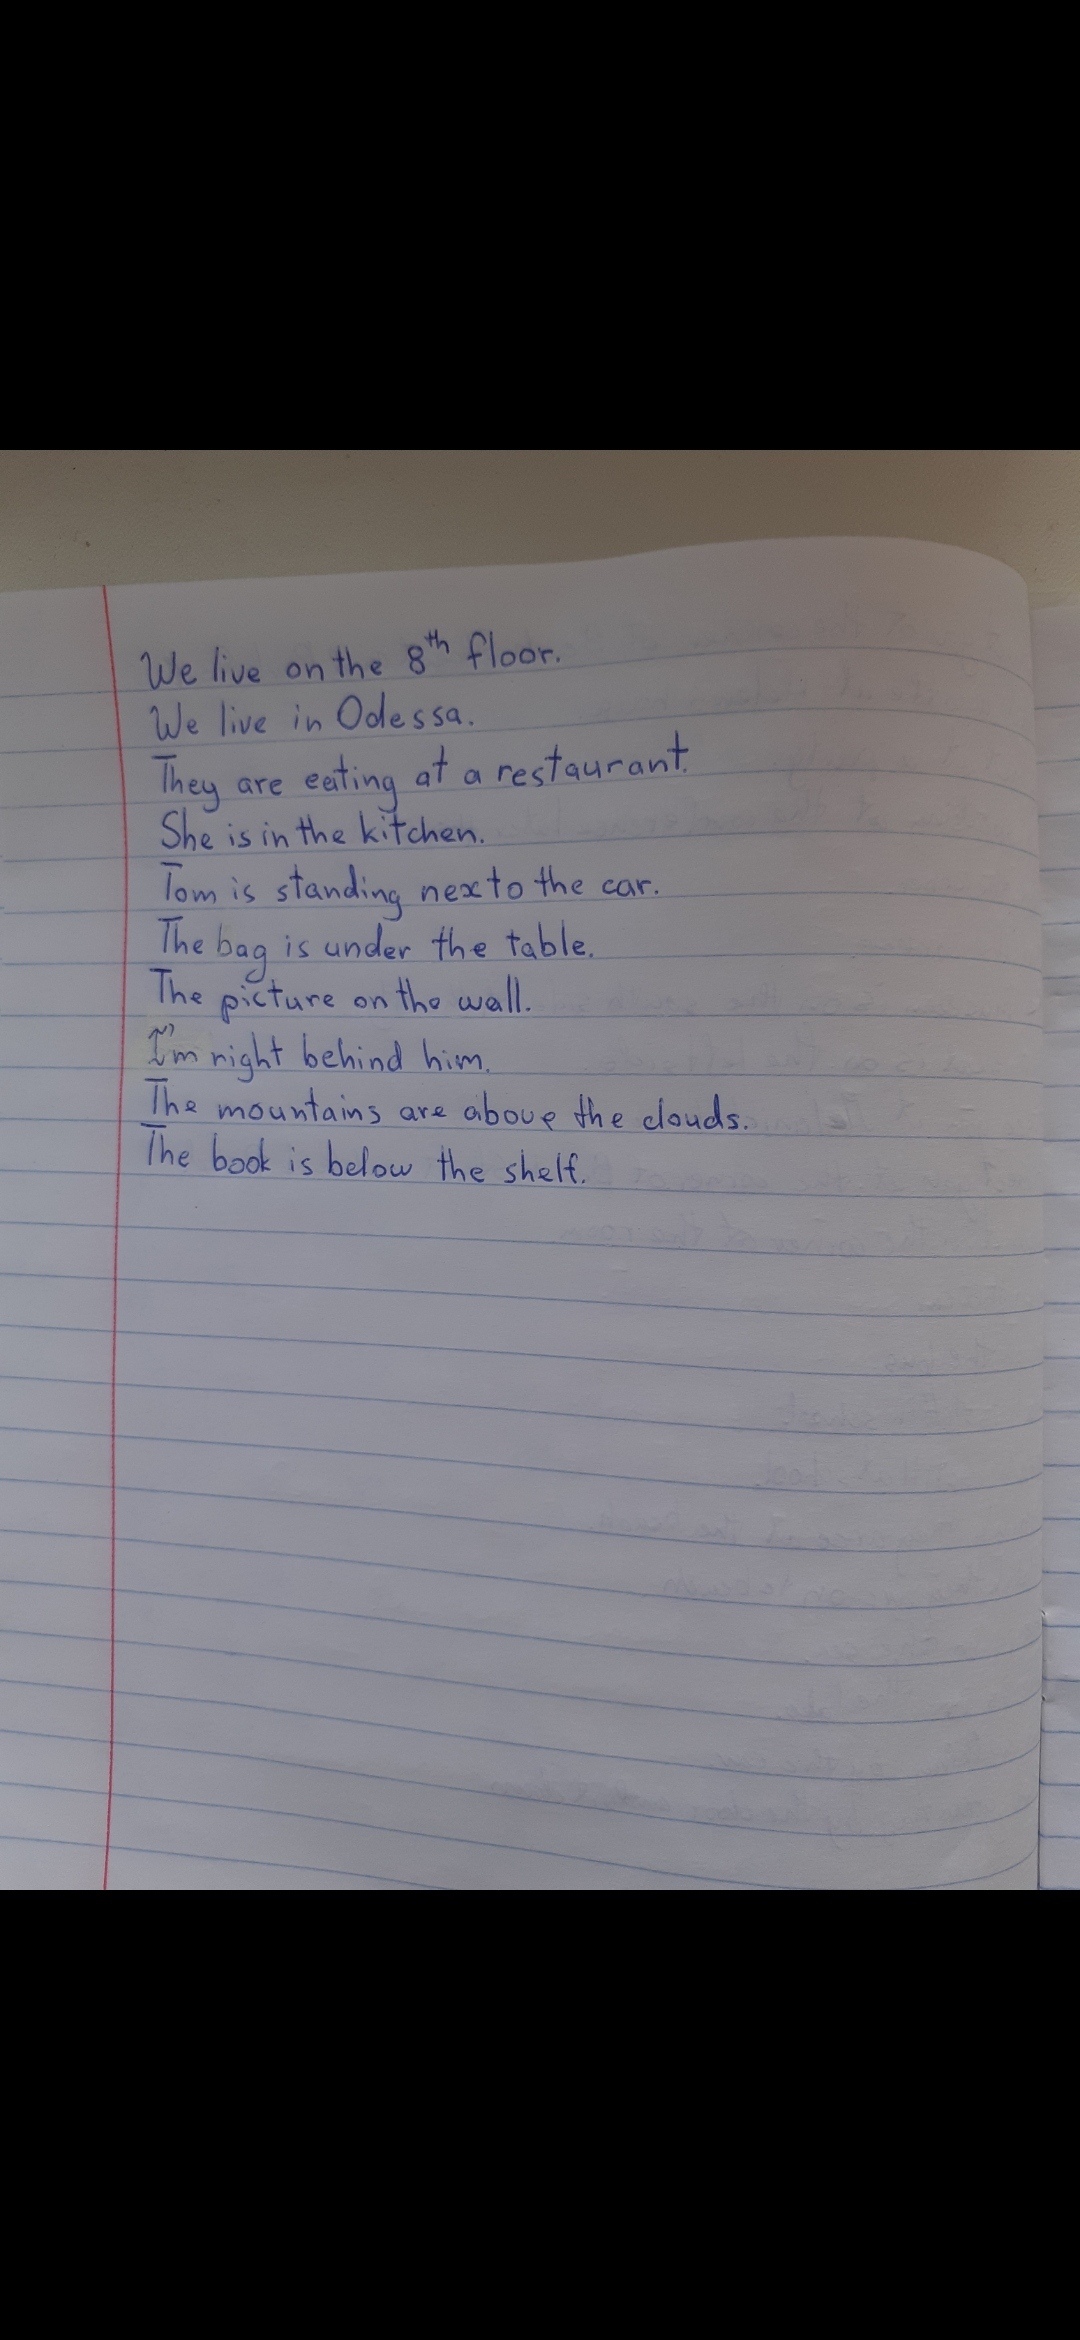 We live on the 8th floor.
We live in Odessa.
They are eating at a restaurant.
She is in the kitchen.
Tom is standing nexto the car.
The bag is under the table.
The picture on the wall.
I'm right behind him.
The mountains are above the clouds.
The book is below the shelf.